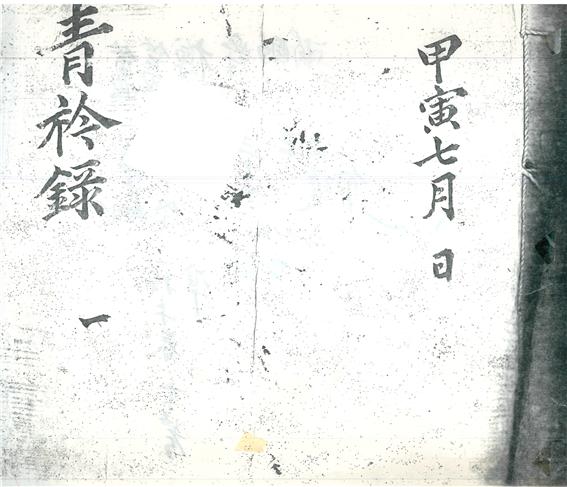 甲寅七月 日
青衿錄 一